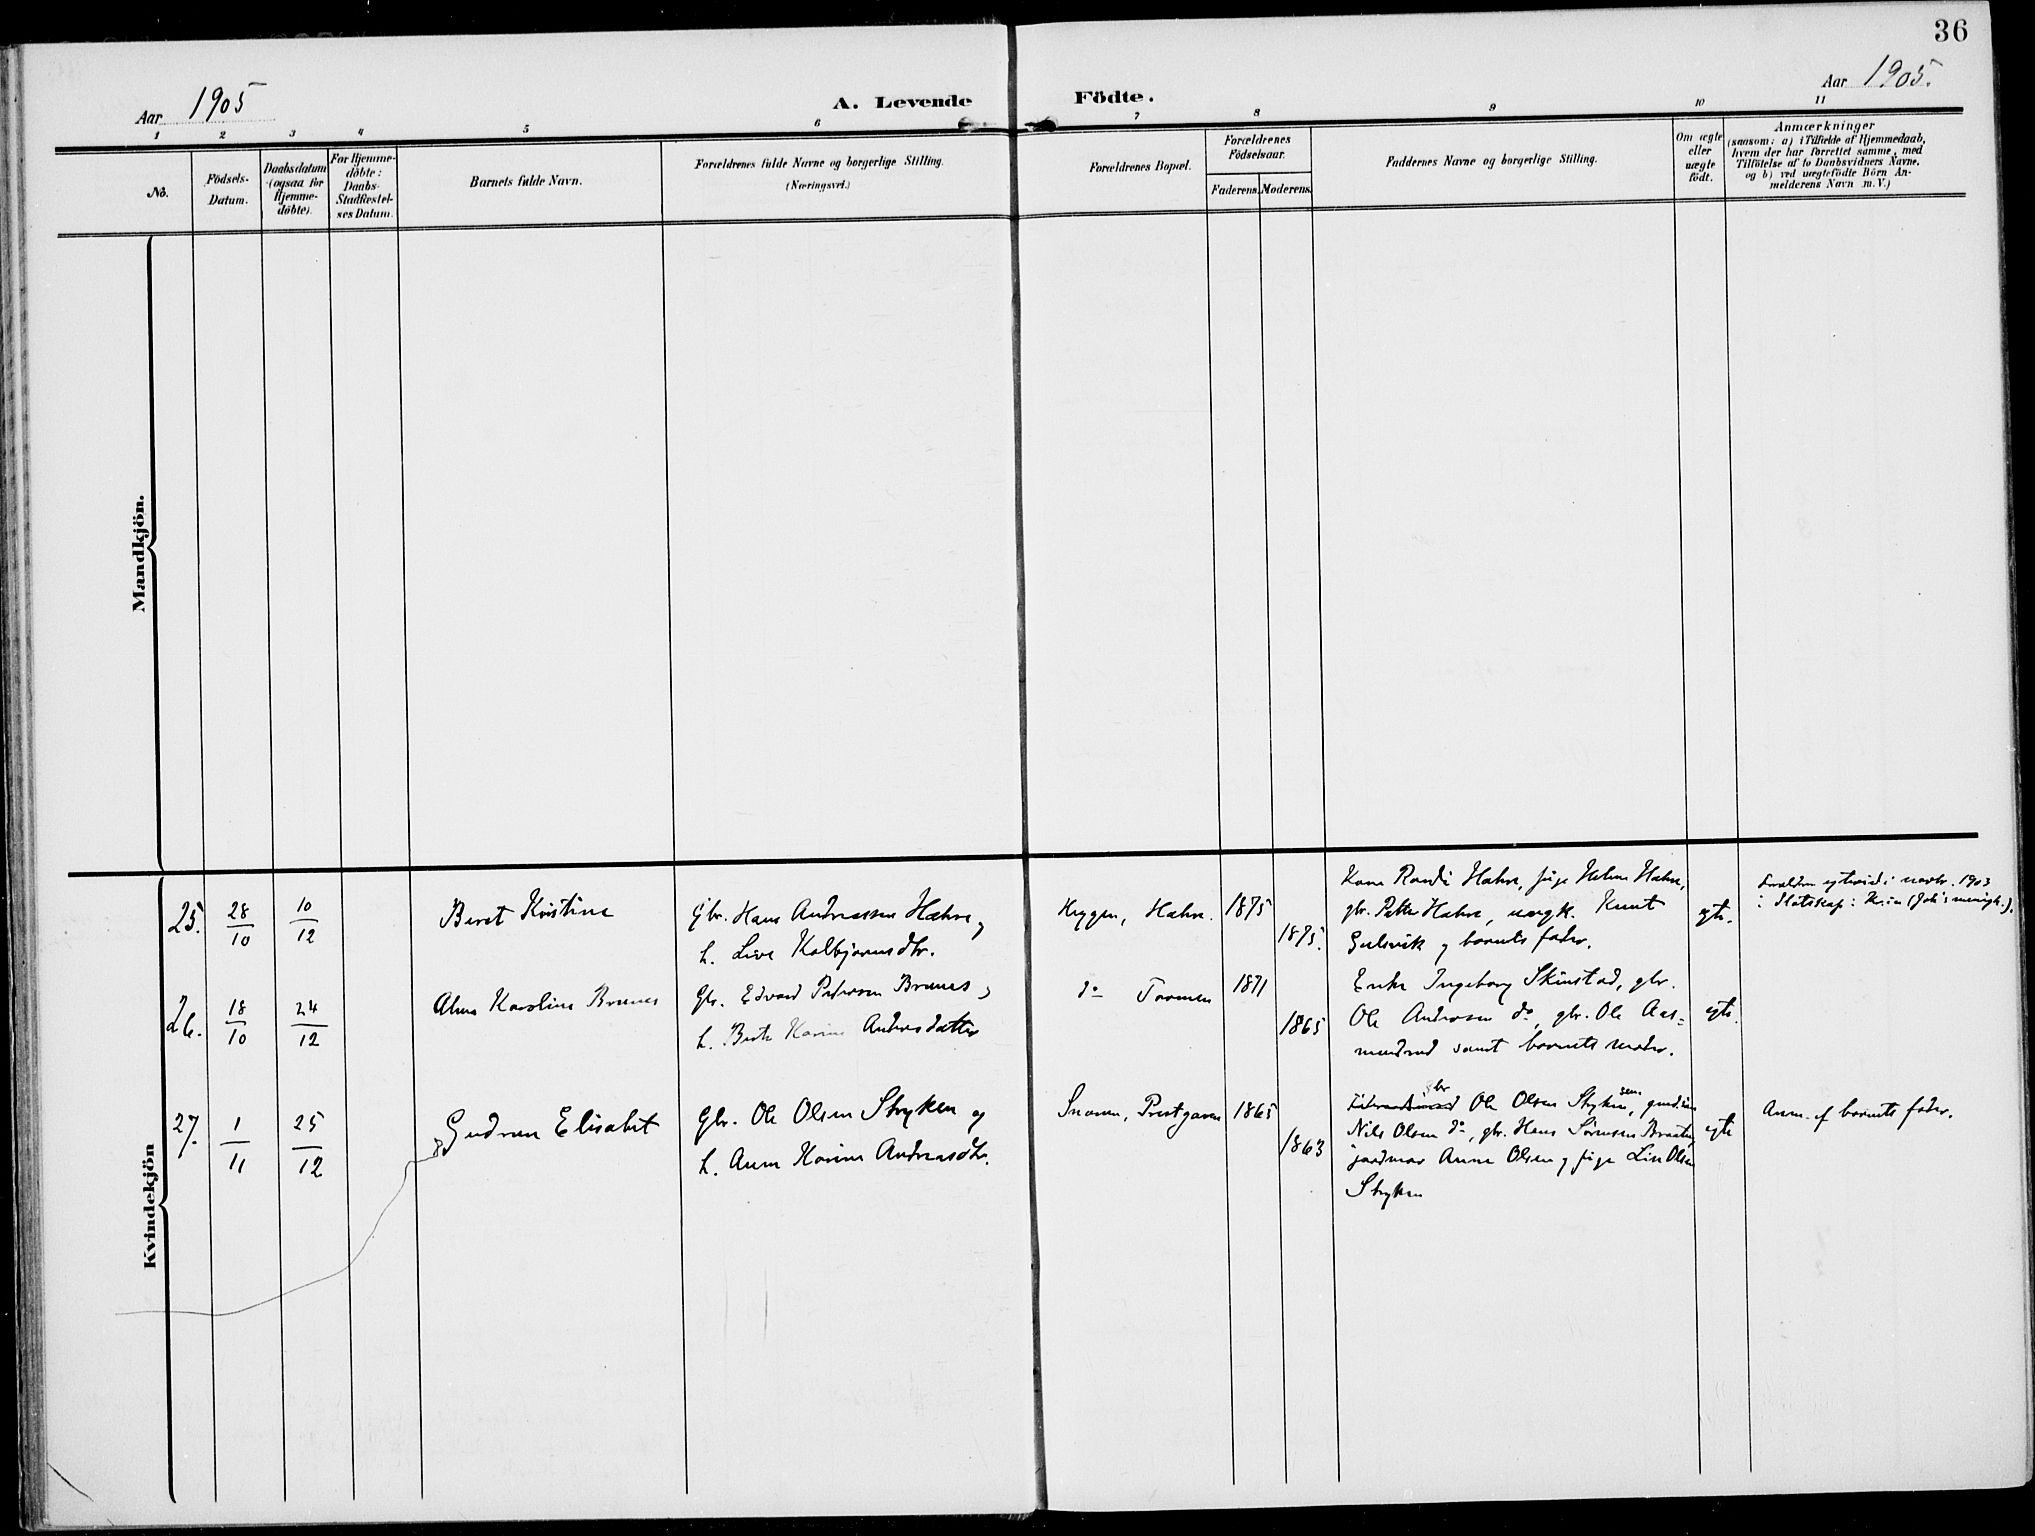 36
Aar 1905
A. Levende Födte.
Aar 1905.
1 2 3 4 5 6 7 8 9 10 11
No.
Födsels-Datum.
Daabsdatum (ogsaa for Hjemme-döbte).
For Hjemme-döbte: Daabs-Stadfæstel-ses Datum.
Barnets fulde Navn.
Forældrenes fulde Navne og borgerlige Stilling. (Næringsvei.)
Forældrenes Bopæl.
Forældrenes Födselsaar.
Faderens. Moderens.
Faddernes Navne og borgerlige Stilling.
Om ægte eller uægte födt.
Anmærkninger
(saasom: a) i Tilfælde af Hjemmedaab,
hvem der har forrettet samme, med
Tilföielse af to Daabsvidners Navne,
og b) ved uægtefödte Börn An-
melderens Navn m. V.)
Mandkjön.
Kvindekjön
25. 28/10 10/12 Beret Kristine
Gbr. Hans Andreassen Hahre og
h. Live Kolbjørnsdtr.
Kryggen, Hahre. 1875 1875.
Kone Randi Hahre, pige Helene Hahre,
gbr. Petter Hahre, ungk. Knut
Gulsvik og barnets fader.
egte.
1903
26. 18/10 24/12 Alma Karoline Brunes
Gbr. Edvard Pedersen Brunes og
h. Berte Karine Andersdatter
do 1871 1865
Enke Ingeborg Skinstad, gbr.
Ole Andersen do, gbr. Ole Aas=
mundrud samt barnets moder.
egte.
27. 1/11 25/12 Gudrun Elisabet
Gbr. Ole Olsen Stryken og
h. Anne Karine Andreasdtr.
Snarum, Prestgaren 1865 1863
gbr Ole Olsen Stryken sen,
Nils Olsen do, gbr. Hans Sörensen Braaten,
jordmor Anne Olsen og pige Lise Olsen
Stryken
egte
Anm. af barnets fader.